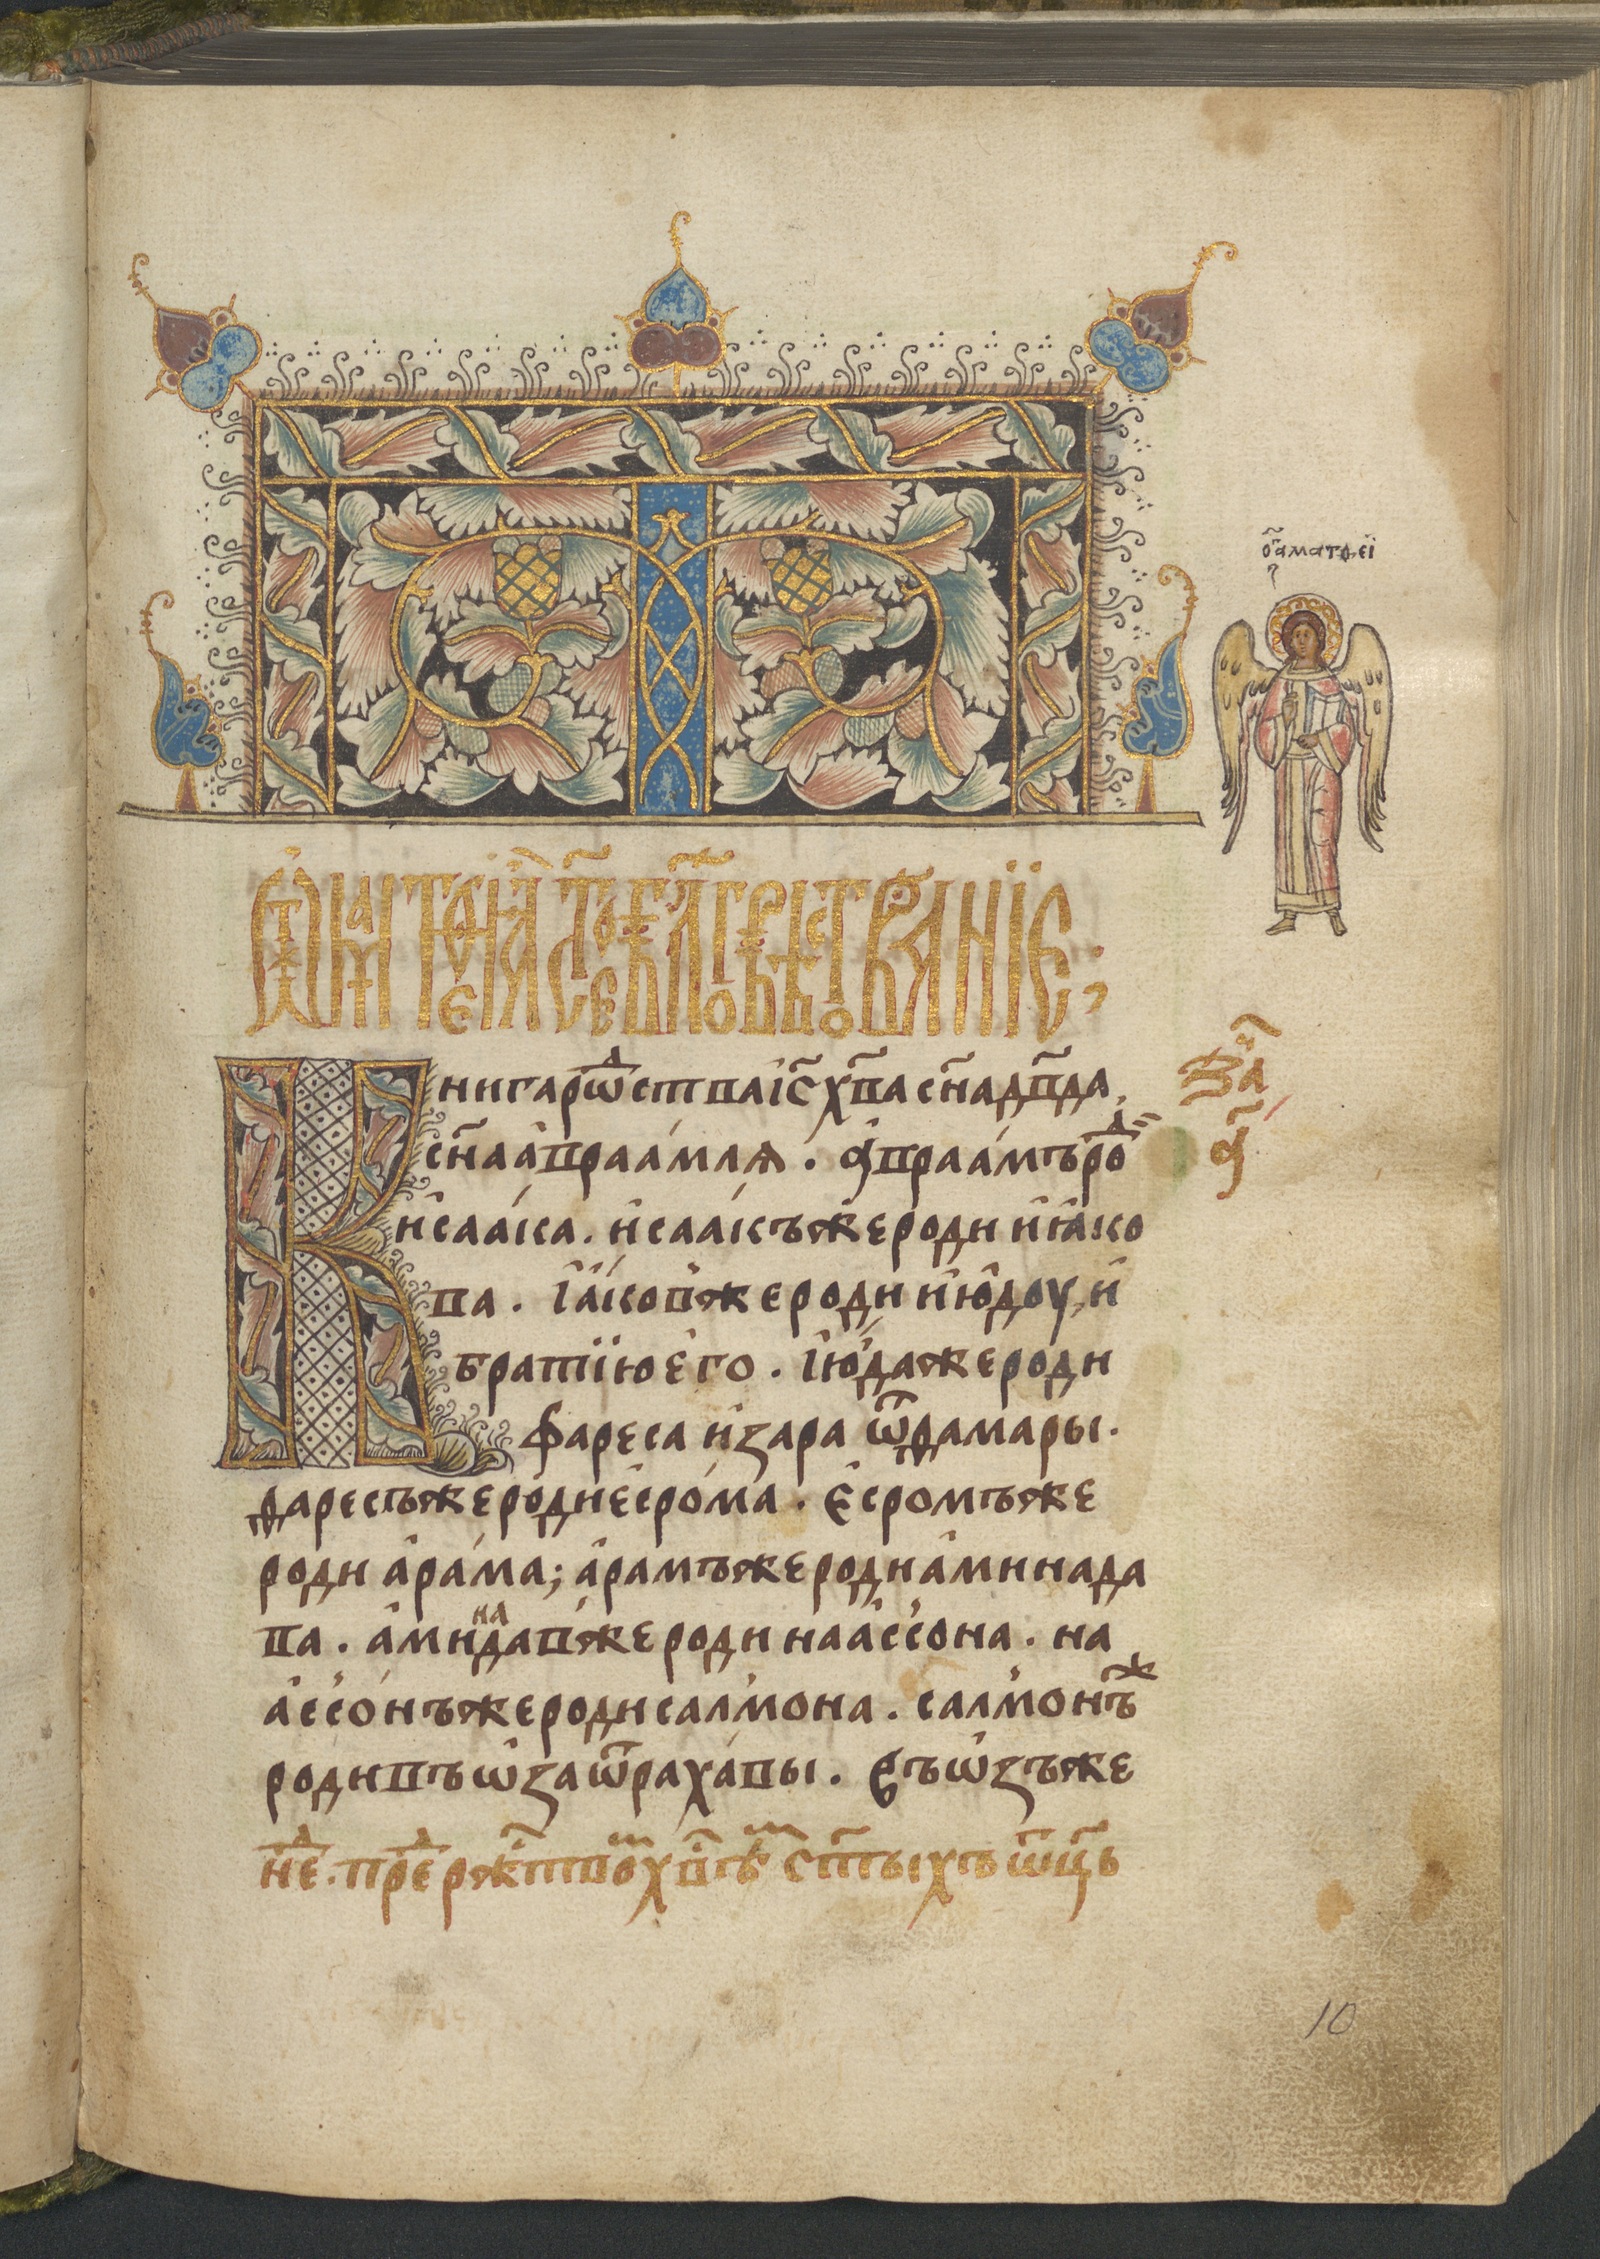 ѡ҃аматѳеі
Ѿ маттеѧ ст҃ое еѵⷢ҇лїе блговѣствованїе;
Книга рѡⷣства іс҃ хв҃а сн҃а дв҃да
сн҃а авраамлѧ. авраамъ роⷣ
исаака. исаакъ же роди иꙗко
ва. іꙗков же роди июдоу, и
братїю его. июда же роди
фареса и зара ѿ ѳамары.
фаресъ же роди есрома. есромъ же
роди арама; арамъ же роди аминада
ва. аминадав же роди наассона. на
ассонъ же роди салмона. салмонъⷤ
роди въѡза ѿ рахавы. въѡзъ же
зач҃
а҃
нⷣе. преⷣ ржⷭ҇твоⷨ хвⷭ҇ѣⷨ ст҃ыхъ ѿц҃ь
10